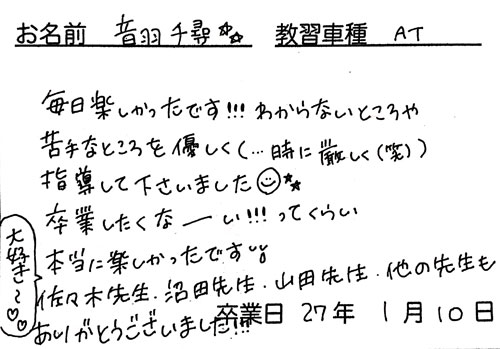 お名前 音羽千尋 教習車種 AT
毎日楽しかったです!!! わからないところや
苦手なところを優しく(...時に厳しく(笑))
指導して下さいました
卒業したくなーい!!! ってくらい
本当に楽しかったです
大好き〜♡♡
佐々木先生、沼田先生、山田先生、他の先生も
ありがとうございました!!!
卒業日 27年 1月10日